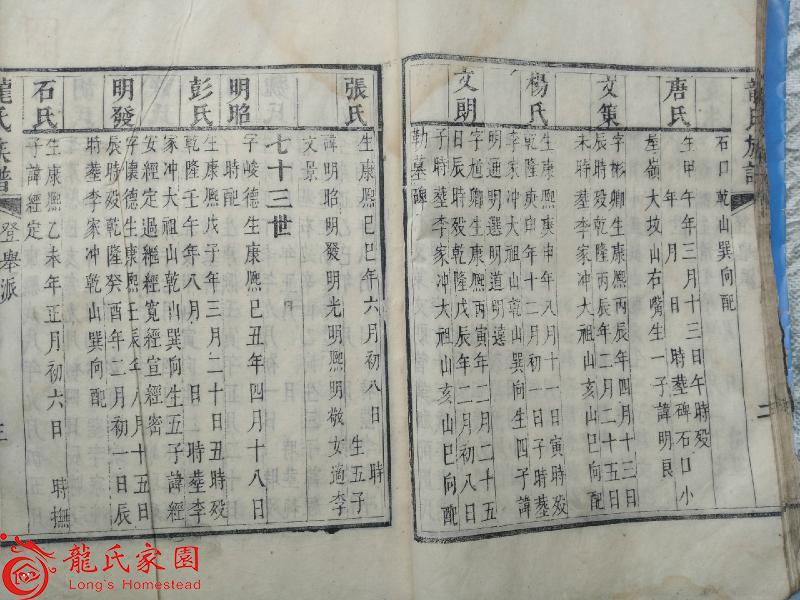 龍氏族譜
二
石口乾山巽向配
唐氏
生甲午年三月十三日午時歿
年 月 日 時塟碑石口小
峚嶺大坟山右嘴生一子諱明良
文集
字彬卿生康熙丙辰年四月十三日
辰時歿乾隆丙辰年二月二十五日
未時塟李家冲大祖山亥山巳向配
楊氏
生康熙庚申年八月十一日寅時歿
乾隆庚申年十二月初一日子時塟
李家冲大祖山乾山巽向生四子諱
明通明選明道明遠
文朗
字尴卿生康熙丙寅年二月二十五
日辰時歿乾隆戊辰年二月初八日
子時塟李家冲大祖山亥山巳向配
勒墓碑
張氏
生康熙己巳年六月初八日 時
生五子
諱明昭明發明光明熙明敬女適李
文景
七十三世
明昭
字峻德生康熙己丑年四月十八日
丫時配
彭氏
生康熙戊子年三月二十日丑時歿
乾隆壬午年八月 日 時塟李
家冲大祖山乾山巽向生五子諱經
女經定過繼經寬經宣經密
明發
字儴德生康熙壬辰年八月十五日
辰時歿乾隆癸酉年二月初一日辰
時塟李家冲乾山巽向配
石氏
生康熙乙未年正月初六日 時撫
子諱經定
龍氏族譜
登舉派
三
龍氏家園
Long's Homestead